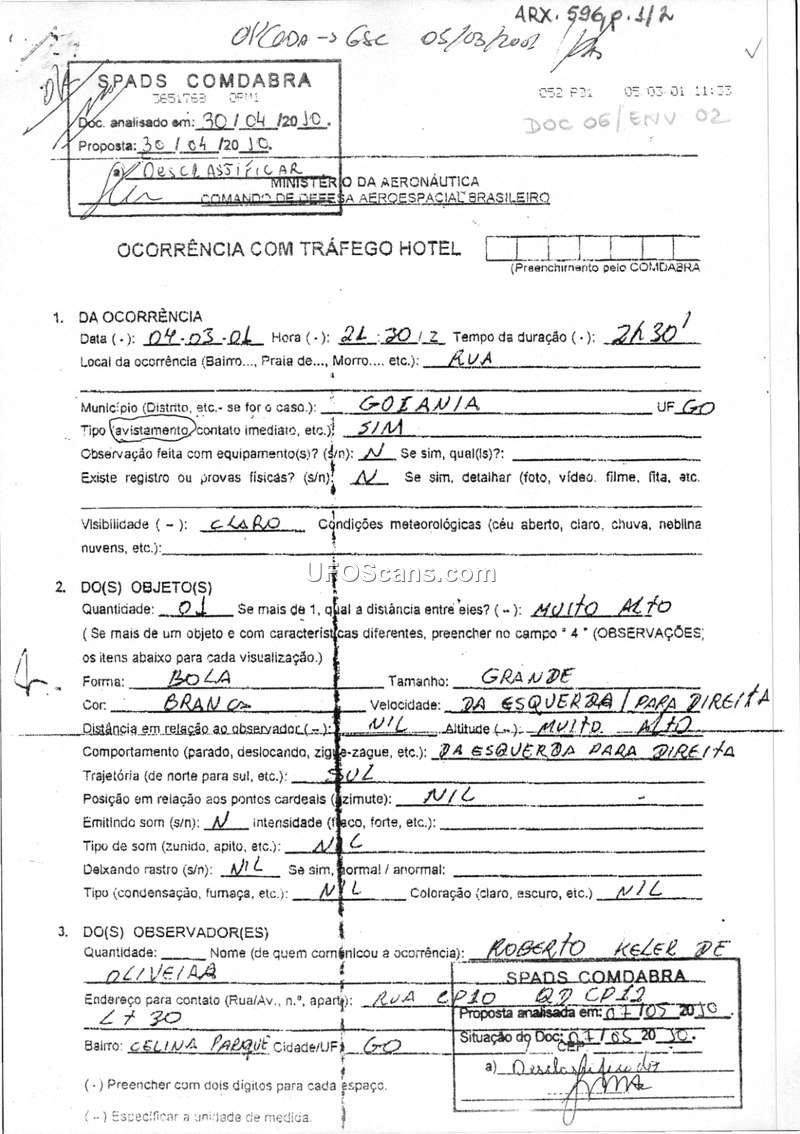 ARX. 596, p. 1/2
05/03/2001
SPADS COMDABRA
3651768
052 P01 05-03-01 11:33
Doc. analisado em: 30/04/2010.
DOC 06/ENV 02
Proposta: 30/04/2010.
a) DESCLASSIFICAR
MINISTÉRIO DA AERONÁUTICA
COMANDO DE DEFESA AEROESPACIAL BRASILEIRO
OCORRÊNCIA COM TRÁFEGO HOTEL
(Preenchimento pelo COMDABRA
1. DA OCORRÊNCIA
Data (-): 04-03-01 Hora (-): 21:30/Z Tempo da duração (-): 2h30'
Local da ocorrência (Bairro..., Praia de..., Morro.... etc.): RUA
Município (Distrito, etc.- se for o caso.): GOIANIA UF GO
Tipo (avistamento, contato imediato, etc.): SIM
Observação feita com equipamento(s)? (s/n): N Se sim, qual(is)?:
Existe registro ou provas físicas? (s/n): N Se sim, detalhar (foto, vídeo. filme, fita, etc.
Visibilidade (--): CLARO Condições meteorológicas (céu aberto, claro, chuva, neblina
nuvens, etc.):
UFOScans.com
2. DO(S) OBJETO(S)
Quantidade: 01 Se mais de 1, qual a distância entre eles? (--): MUITO ALTO
( Se mais de um objeto e com características diferentes, preencher no campo " 4 " (OBSERVAÇÕES;
os itens abaixo para cada visualização.)
Forma: BOLA Tamanho: GRANDE
Cor: BRANCA Velocidade: DA ESQUERDA / PARA DIREITA
Distância em relação ao observador (--): NIL Altitude (--): MUITO ALTO
Comportamento (parado, deslocando, zigue-zague, etc.): DA ESQUERDA PARA DIREITA
Trajetória (de norte para sul, etc.): SUL
Posição em relação aos pontos cardeais (azimute): NIL -
Emitindo som (s/n): N Intensidade (fraco, forte, etc.):
Tipo de som (zunido, apito, etc.): NIL
Deixando rastro (s/n): NIL Se sim, normal / anormal:
Tipo (condensação, fumaça, etc.): NIL Coloração (claro, escuro, etc.) NIL
3. DO(S) OBSERVADOR(ES)
Quantidade: Nome (de quem comunicou a ocorrência): ROBERTO KELER DE
OLIVEIRA
SPADS COMDABRA
Endereço para contato (Rua/Av., n.º, apart): RUA CP10 QD CP12
LT 30
Proposta analisada em: 07/05 2010.
Situação do Doc: 07/05 2010.
Bairro: CELINA PARQUE Cidade/UF: GO CEP:
a) Desclassificado
(-) Preencher com dois dígitos para cada espaço.
(--) Especificar a unidade de medida.